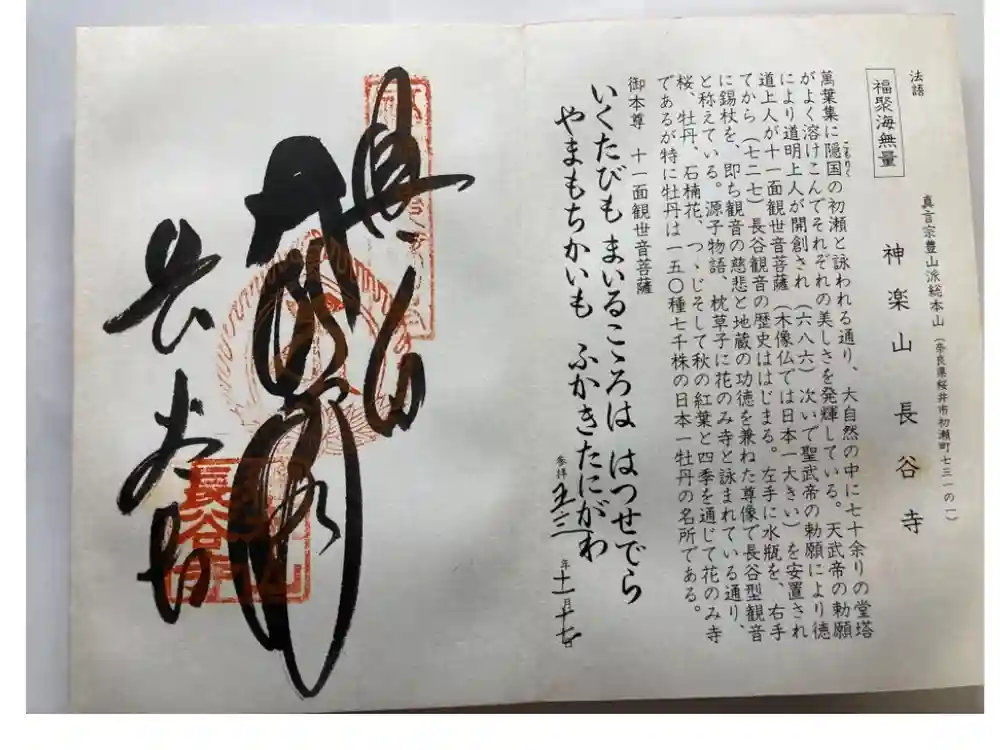 法語
福聚海無量
真言宗豊山派総本山（奈良県桜井市初瀬町七三一の一）
神楽山 長谷寺
萬葉集に隠国の初瀬と詠われる通り、大自然の中に七十余りの堂塔
こもりく
がよく溶けこんでそれぞれの美しさを発輝している。天武帝の勅願
により道明上人が開創され（六八六）次いで聖武帝の勅願により徳
道上人が十一面観世音菩薩（木像仏では日本一大きい）を安置され
てから（七二七）長谷観音の歴史ははじまる。左手に水瓶を、右手
に錫杖を、即ち観音の慈悲と地蔵の功徳を兼ねた尊像で長谷型観音
と称えている。源子物語、枕草子に花のみ寺と詠まれている通り、
桜、牡丹、石楠花、つゝじそして秋の紅葉と四季を通じて花のみ寺
であるが特に牡丹は一五〇種七千株の日本一牡丹の名所である。
御本尊 十一面観世音菩薩
いくたびも まいるこゝろは はつせでら
やまもちかいも ふかきたにがわ
参拝 五三年十一月十七日
長谷寺